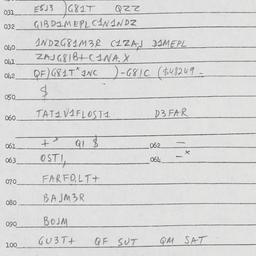 031 E5J3 )G81T QZZ
032 GIBD1MEPLC1N1NDZ
040 1NDZG81M3R C1ZAJ D1MEPL
041 ZAJG81B+C1NA.X
042 QF)G81T*1NC )-G81C ($4)249-
050 $
060 TAT1V1FLOST1 D3FAR
061 +* Q1 $ 062 -
063 OST1, 064 -*
070 FARFD,LT+
080 BAJM3R
090 BOJM
100 GU3T+ QF SUT QM SAT